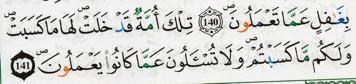 بِغَٰفِلٍ عَمَّا تَعۡمَلُونَ ١٤٠ تِلۡكَ أُمَّةٞ قَدۡ خَلَتۡۖ لَهَا مَا كَسَبَتۡ
وَلَكُم مَّا كَسَبۡتُمۡۖ وَلَا تُسۡـَٔلُونَ عَمَّا كَانُواْ يَعۡمَلُونَ ١٤١